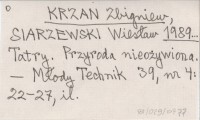 KRZAN Zbigniew,
SIARZEWSKI Wiesław 1989.
Tatry. Przyroda nieożywiona.
— Młody Technik 39, nr 4:
22-27, il.